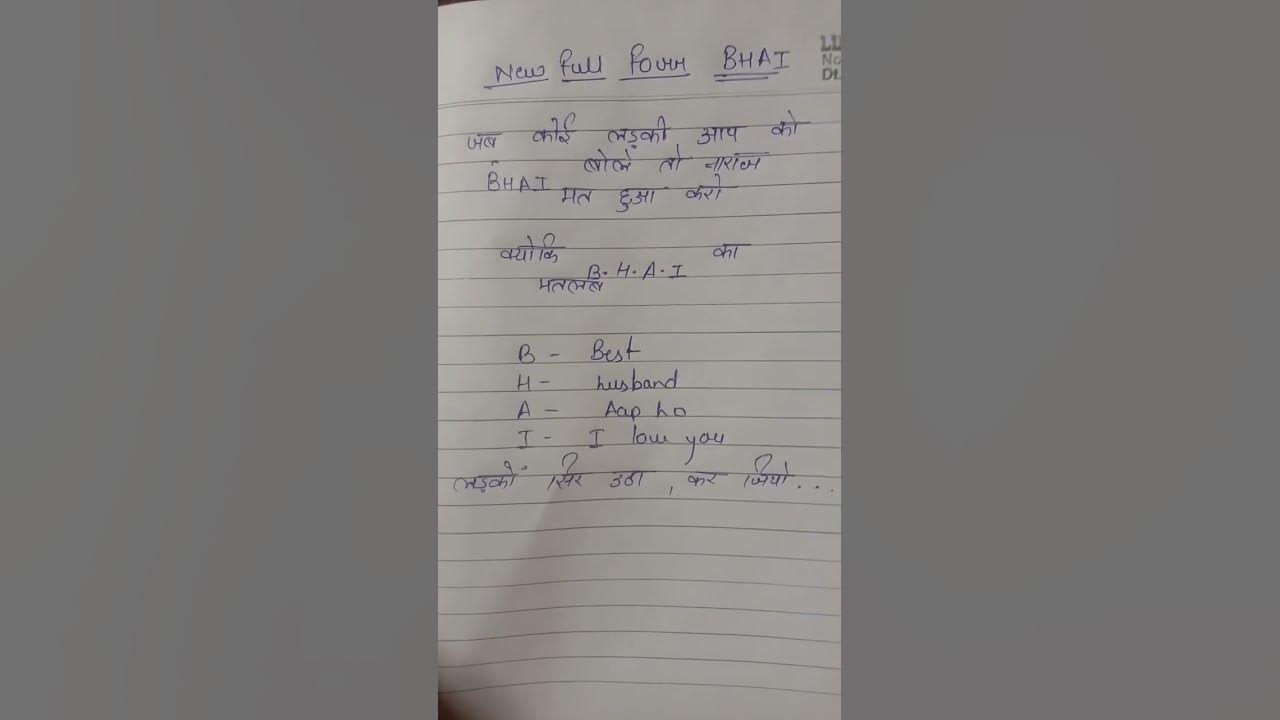 New Full Form BHAI
जब कोई लड़की आप को
BHAI बोले तो नाराज
मत हुआ करो
क्योकि B.H.A.I का
मतलब
B - Best
H - husband
A - Aap ho
I - I love you
लड़कों सिर उठा , कर जियो...